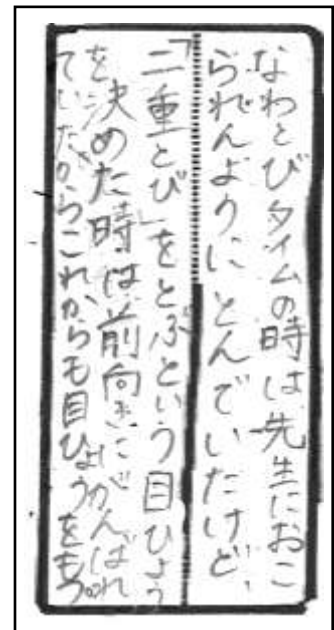 なわとびタイムの時は先生におこ
られんようにとんでいたけど、
「二重とび」をとぶという目ひょう
を決めた時は前向きにがんばれ
ていたからこれからも目ひょうをもつ。